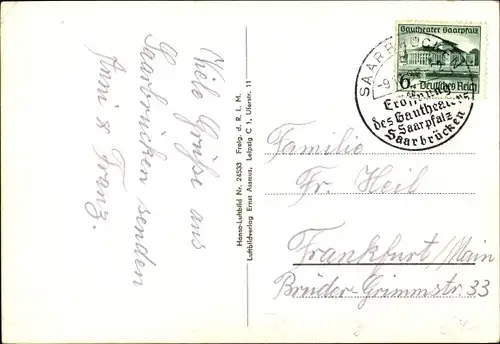 Viele Grüße aus
Saarbrücken senden
Anni & Franz.
Hansa-Luftbild Nr. 24533 Freig. d. R. L. M.
Luftbildverlag Ernst Assmus, Leipzig C 1, Uferstr. 11
Gautheater Saarpfalz
6 Deutsches Reich
SAARBRÜCKEN
Eröffnung
des Gautheaters
Saarpfalz
Saarbrücken
Familie
Fr. Heil
Frankfurt/Main
Brüder-Grimmstr. 33